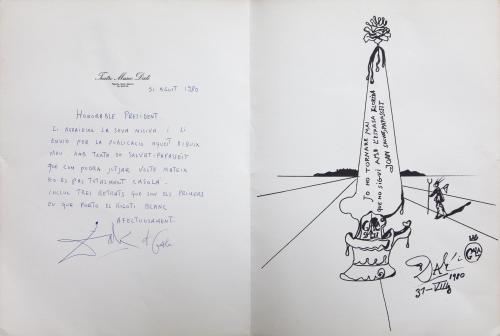 Teatre Museu Dalí
31 AGUIT 1980
HONORABLE PRESIDENT
LI AGRAEIXU LA SEVA MISIVA I LI
ENVIO PER LA PUBLICACIO AQUET DIBUIX
MEU AMB TEXTO DE SALVAT-PAPASEIT
QUE COM PODRA JUTJAR VOSTE MATEIX
NO ES PAS TOTALMENT CASOLA.
INCLUC TRES RETRATS QUE SON ELS PRIMERS
EU QUE PORTO EL BIGOTI BLANC
AFECTUOSAMENT.
JO NO TORNARE MAI
QUE NO SIGUI AMB L'ESPASA FLORIDA
JOAN SALVAT PAPASSEIT
GALA
Dalí
1980
31-VIII